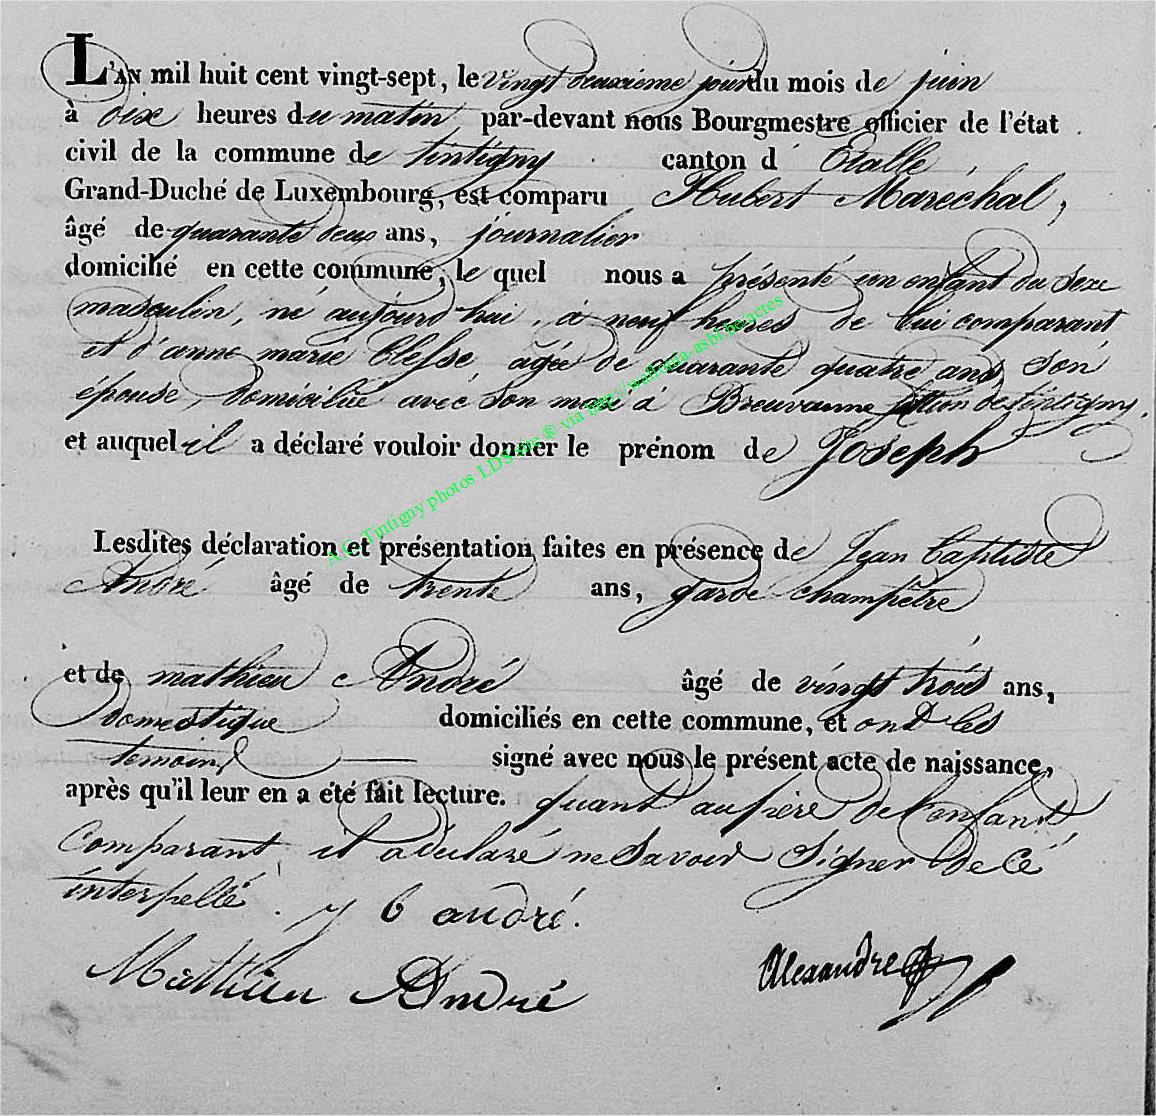 L'AN mil huit cent vingt-sept, le vingt deuxieme jour du mois de juin
à dix heures du matin par-devant nous Bourgmestre officier de l'état
civil de la commune de tintigny canton d'Étalle,
Grand-Duché de Luxembourg, est comparu Hubert Maréchal,
âgé de quarante deux ans, journalier
domicilié en cette commune, le quel nous a présenté un enfant du sexe
masculin, né aujourd'hui, à neuf heures de lui comparant
et d'anne marie Clesse, agée de quarante quatre ans son
épouse, domicilié avec son mari à Breuvanne section de tintigny,
et auquel il a déclaré vouloir donner le prénom de Joseph
Lesdites déclaration et présentation faites en présence de Jean baptiste
André âgé de trente ans, garde champêtre
et de mathieu André âgé de vingt trois ans,
domestique domiciliés en cette commune, et ont les
temoins signé avec nous le présent acte de naissance,
après qu'il leur en a été fait lecture. quant au père de l'enfant
Comparant, il a déclaré ne savoir signer de ce
interpellé. J b andré.
Mathieu André Alexandre
A.C. Tintigny photos LDS site ® via http://wallonia-asbl.be/actes